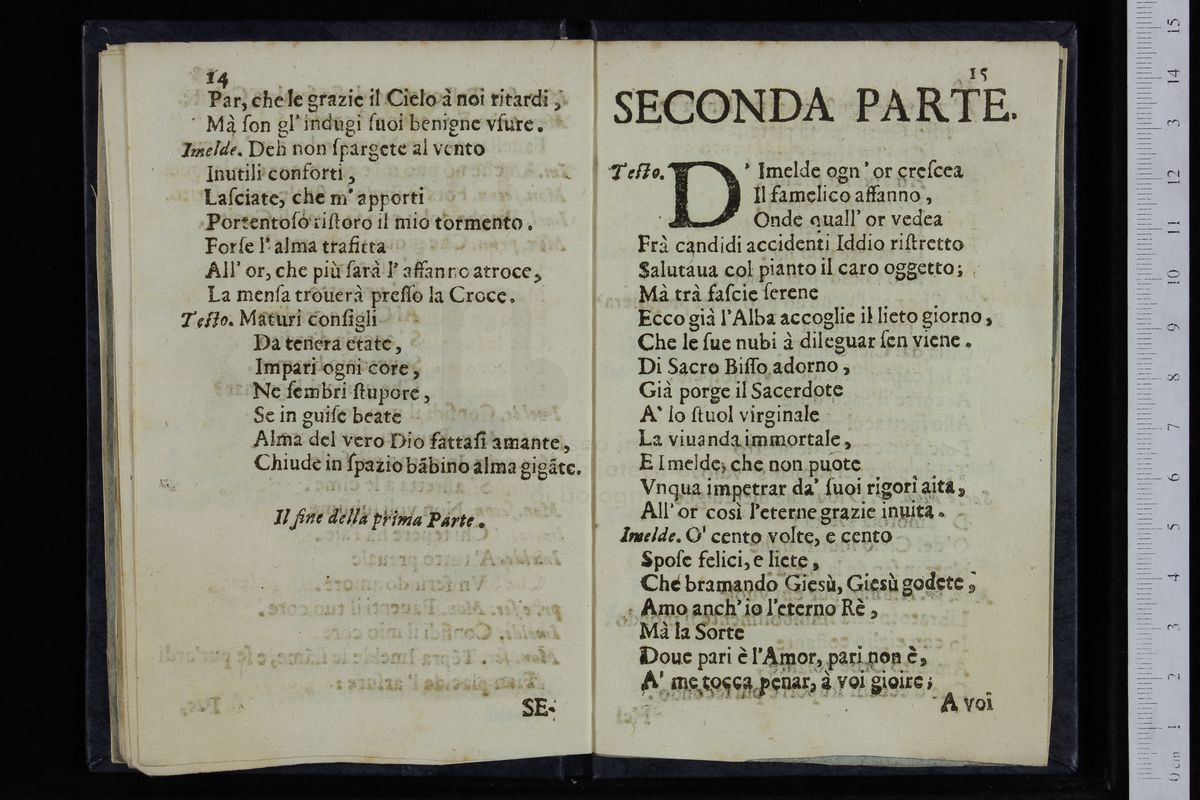 14
Par, che le grazie il Cielo à noi ritardi,
Mà ſon gl'indugi ſuoi benigne vſure.
Imelde. Deh non ſpargete al vento
Inutili conforti,
Laſciate, che m'apporti
Portentoſo riſtoro il mio tormento.
Forſe l'alma trafitta
All'or, che più ſarà l'affanno atroce,
La menſa trouerà preſſo la Croce.
Teſto. Maturi conſigli
Da tenera etate,
Impari ogni core,
Ne ſembri ſtupore,
Se in guiſe beate
Alma del vero Dio fattaſi amante,
Chiude in ſpazio bābino alma gigāte.
Il fine della prima Parte.
SE-
15
SECONDA PARTE.
Teſto. D'Imelde ogn'or creſcea
Il famelico affanno,
Onde quall'or vedea
Frà candidi accidenti Iddio riſtretto
Salutaua col pianto il caro oggetto;
Mà trà faſcie ſerene
Ecco già l'Alba accoglie il lieto giorno,
Che le ſue nubi à dileguar ſen viene.
Di Sacro Biſſo adorno,
Già porge il Sacerdote
A' lo ſtuol virginale
La viuanda immortale,
E Imelde, che non puote
Vnqua impetrar da' ſuoi rigori aita,
All'or così l'eterne grazie inuita.
Imelde. O' cento volte, e cento
Spoſe felici, e liete,
Che bramando Giesù, Giesù godete;
Amo anch'io l'eterno Rè,
Mà la Sorte
Doue pari è l'Amor, pari non è,
A' me tocca penar, à voi gioire;
A voi
0 cm 1 2 3 4 5 6 7 8 9 10 11 12 13 14 15